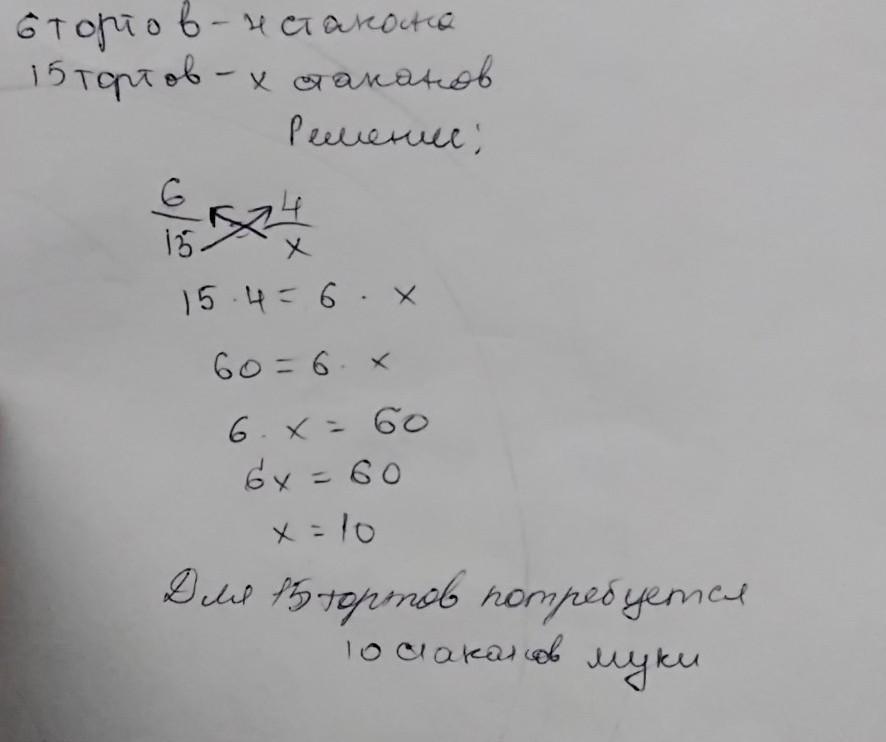 6 тортов - 4 стакана
15 тортов - х стаканов
Решение:
6 4
15 х
15 · 4 = 6 · х
60 = 6 · х
6 · х = 60
6х = 60
х = 10
Для 15 тортов потребуется
10 стаканов муки